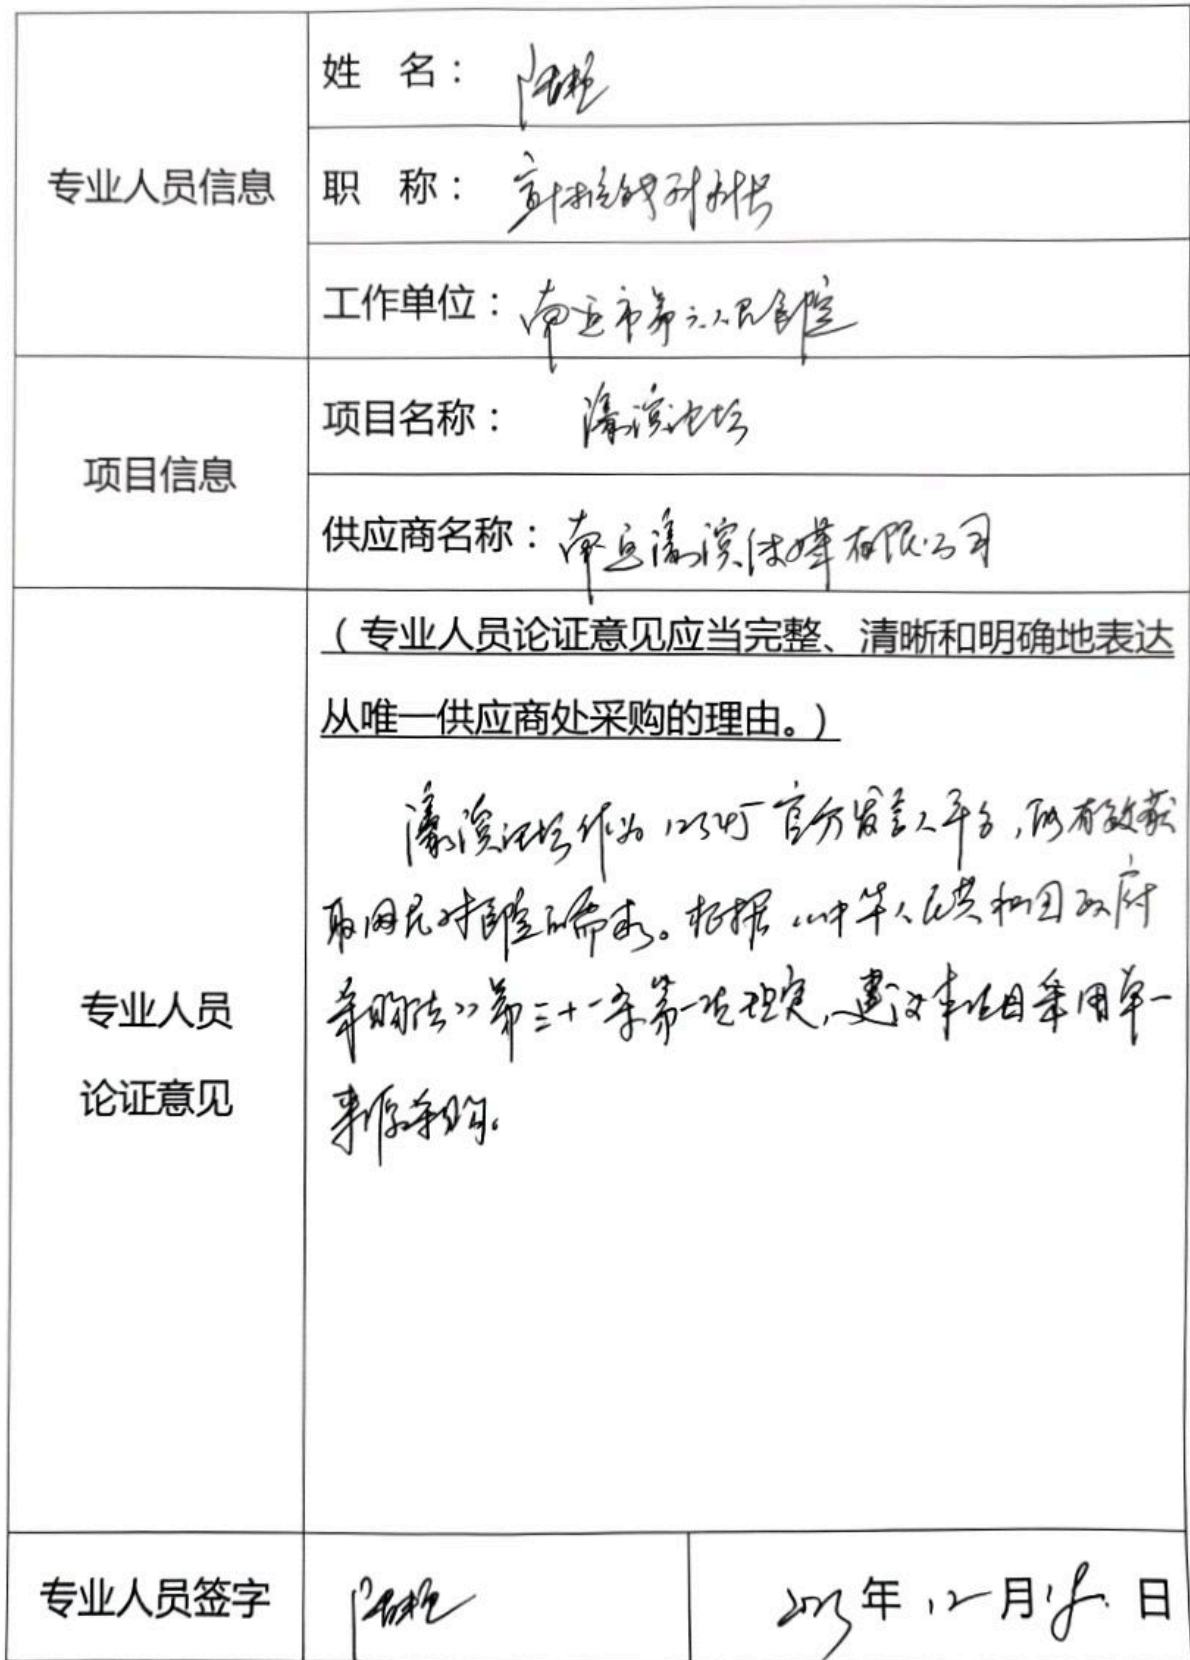 专业人员信息
姓 名：
职 称：
工作单位：南通市第六人民医院
项目信息
项目名称：濠滨论坛
供应商名称：南通濠滨传媒有限公司
专业人员
论证意见
（专业人员论证意见应当完整、清晰和明确地表达
从唯一供应商处采购的理由。）
濠滨论坛作为12345官方发言人平台，能有效获
取网民对医院的需求。根据《中华人民共和国政府
采购法》第三十一条第一项规定，建议本项目采用单一
来源采购。
专业人员签字
年12月 日